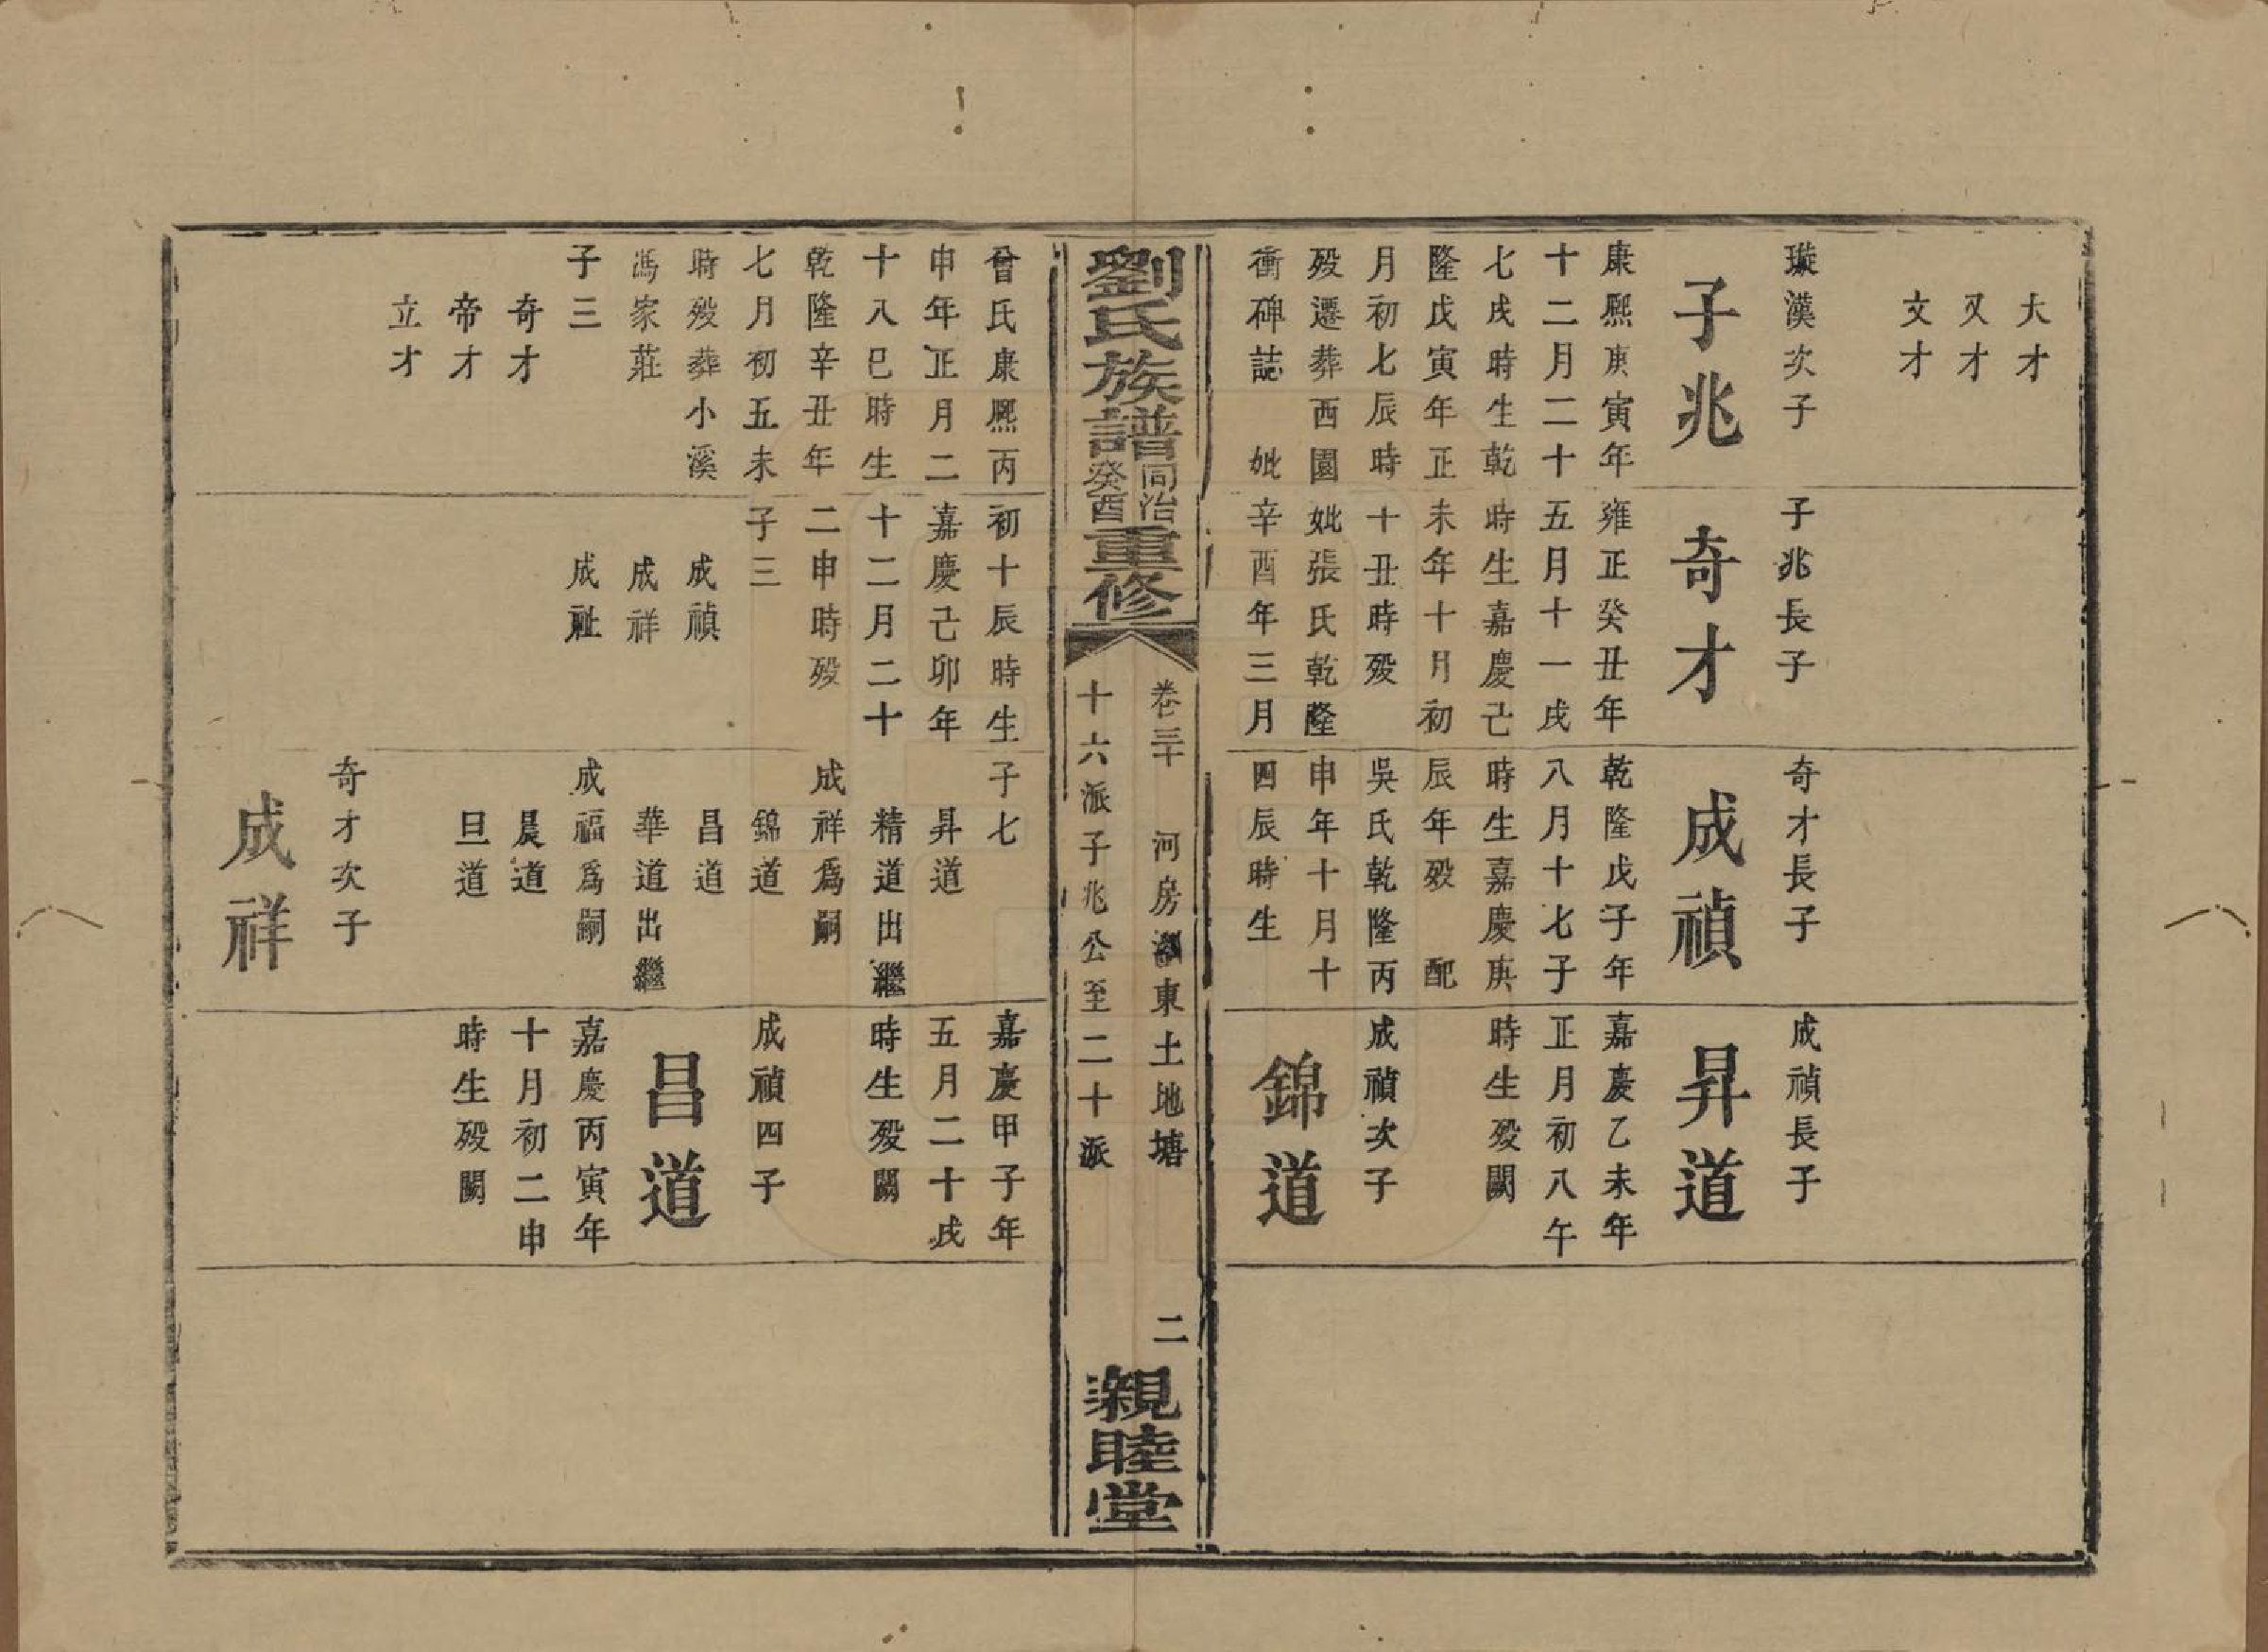 大才
又才
文才
璇漢次子
子兆
康熙庚寅年
十二月二十
七戌時生乾
隆戊寅年正
月初七辰時
殁遷葬西園
衝碑誌 妣
子兆長子
奇才
雍正癸丑年
五月十一戌
時生嘉慶己
未年十月初
十丑時殁
妣張氏乾隆
辛酉年三月
奇才長子
成禎
乾隆戊子年
八月十七子
時生嘉慶庚
辰年殁 配
吳氏乾隆丙
申年十月十
四辰時生
成禎長子
昇道
嘉慶乙未年
正月初八午
時生殁闕
成禎次子
錦道
劉氏族譜同治癸酉重修
卷三十 河房湖東土地塘 二
十六派子兆公至二十派
親睦堂
曾氏康熙丙
申年正月二
十八巳時生
乾隆辛丑年
七月初五未
時殁葬小溪
馮家莊
子三
奇才
帝才
立才
初十辰時生
嘉慶己卯年
十二月二十
二申時殁
子三
成禎
成祥
成祉
子七
昇道
精道出繼
成祥爲嗣
錦道
昌道
華道出繼
成福爲嗣
晨道
旦道
奇才次子
成祥
嘉慶甲子年
五月二十戌
時生殁闕
成禎四子
昌道
嘉慶丙寅年
十月初二申
時生殁闕